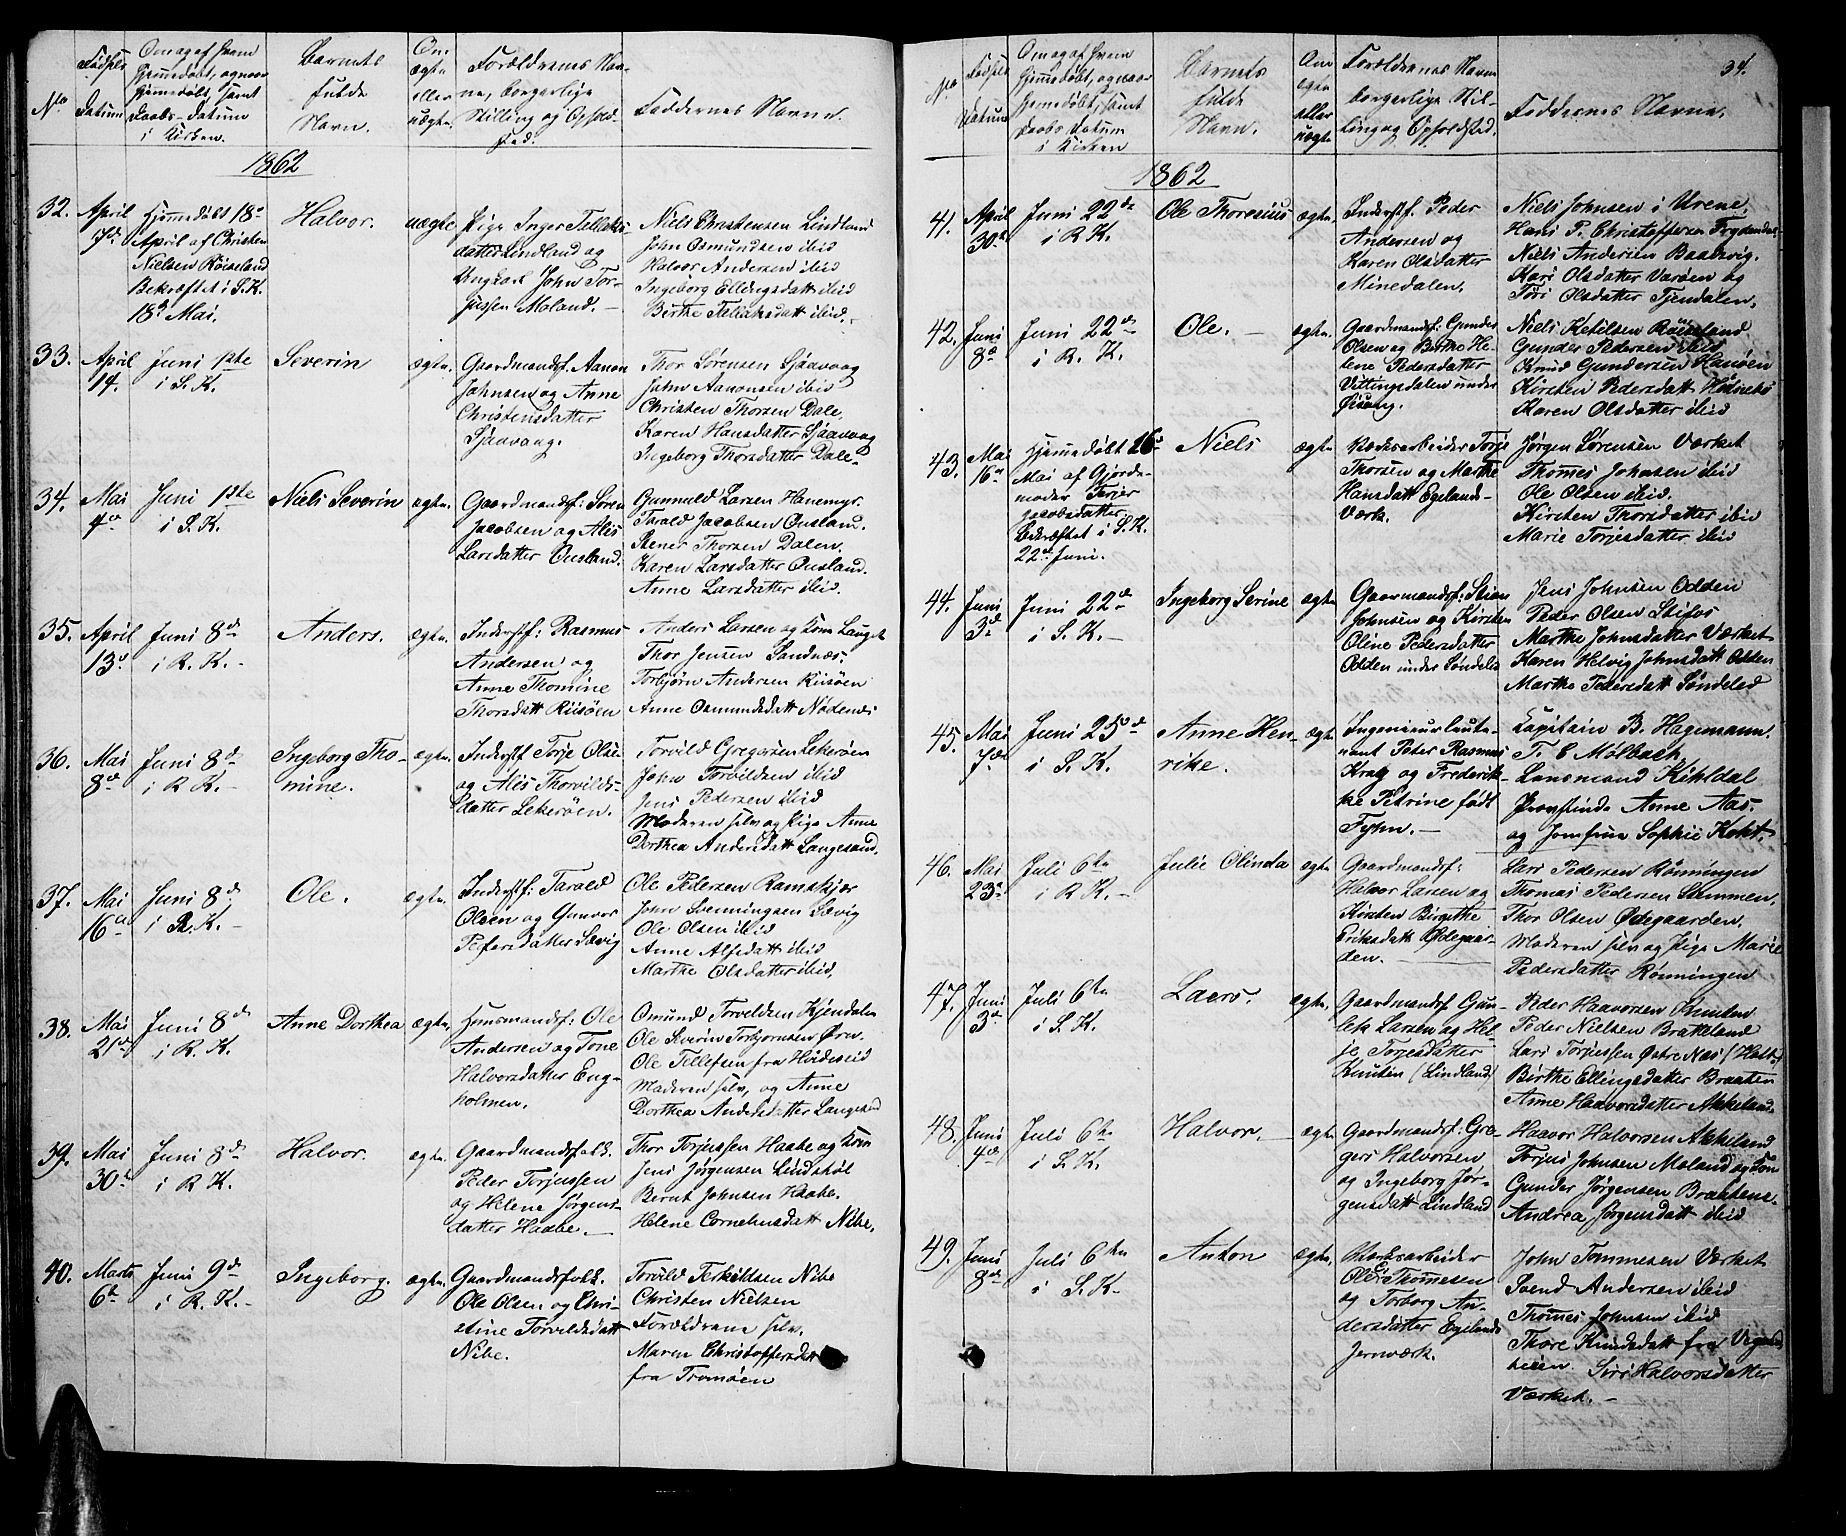 No.
Fødsels Datum
Om og af hvem hjemmedøbt, og naar hjemmedøbt, samt Daabs-Datum i Kirken.
Barnets fulde Navn.
Om ægte eller uægte.
Forældrenes Navne, borgerlige Stilling og Opholdsted.
Faddernes Navne.
1862
32.
April 7de
Hjemmedøbt 18de
April af Christen
Nielsen Röiseland
Bekræftet i S. K.
18de Mai.
Halvor.
uægte
Pige Inger Tellaks-
datter Lindland og
Ungkarl John Tor-
jussen Moland.
Niels Christensen Lindland
John Osmundsen ibid
Halvor Andersen ibid
Ingeborg Ellingsdatt ibid
Birthe Tellaksdatt ibid.
33.
April 14.
Juni 1ste
i S. K.
Severin
ægte.
Gaardmandsf. Aanon
Johnsen og Anne
Christensdatter
Sjaavaag.
Thor Sørensen Sjaavaag
John Aanonsen ibid
Christen Thorsen Dale
Karen Hansdatter Sjaavaag
Ingeborg Thorsdatter Dale.
34.
Mai 4de
Juni 1ste
i S. K.
Niels Severin
ægte.
Gaardmandsf: Søren
Jacobsen og Alis
Larsdatter Ousland.
Gunnuld Larsen Hanemyr.
Tarald Jacobsen Ousland.
Stener Thorsen Dalen.
Karen Larsdatter Ousland.
Anne Larsdatter ibid.
35.
April 13de
Juni 8de
i R. K.
Anders.
ægte.
Inderstf: Rasmus
Andersen og
Anne Thomine
Thorsdatt Riisöen
Anders Larsen og Kone Lauget
Thor Jensen Sandnæs.
Torbjørn Andersen Riisöen
Anne Osmundsdatt Nödenæs
36.
Mai 8de
Juni 8de
i R K.
Ingeborg Tho-
mine.
ægte.
Inderstf Torje Olsen
og Alis Thorvilds-
datter Lekeröen.
Torvild Gregersen Lekeröen
John Torvildsen ibid
Jens Pedersen ibid
Moderen selv og Pige Anne
Dorthea Andersdatt Langesand.
37.
Mai 16de
Juni 8de
i R. K.
Ole.
ægte.
Inderstf: Tarald
Olsen og Gunvor
Pedersdatter Sævig
Ole Pedersen Ramskjær
John Svenningsen Sævig
Ole Olsen ibid
Anne Alfsdatt ibid
Marthe Olsdatter ibid.
38.
Mai 21de
Juni 8de
i R. K.
Anne Dorthea
ægte.
Huusmandsf: Ole
Andersen og Tone
Halvorsdatter Eng-
holmen.
Omund Torvildsen Kjendalen
Ole Severin Torbjørnsen Ørn.
Ole Tellefsen fra Hödeseid
Moderen selv, og Anne
Dorthea Andersdatter Langesand
39.
Mai 30te
Juni 8de
i R K.
Halvor.
ægte.
Gaardmandsfolk.
Peder Torjussen
og Helene Jørgens-
datter Haabe.
Thor Torjussen Haabe og Kone
Jens Jørgensen Lindstöl
Bernt Johnsen Haabe.
Helene Corneliusdatt Nibe.
40.
Marts 6te
Juni 9de
i R. K.
Ingeborg.
ægte.
Gaardmandsfolk.
Ole Olsen og Chri-
stine Torvildsdatt
Nibe.
Torvild Terkildsen Nibe
Christen Nielsen
Forældrene selv.
Maren Christoffersdatt
fra Tromöen
34.
No.
Fødsels Datum
Om og af hvem hjemmedøbt, og naar hjemmedøbt, samt Daabs Datum i Kirken
Barnets fulde Navn.
Om ægte eller uægte
Forældrenes Navne borgerlige Stilling og Opholdsted.
Faddernes Navne.
1862
41.
April 30te
Juni 22de
i R K.
Ole Thoresius
ægte.
Inderstf. Peder
Andersen og
Karen Olsdatter
Minedalen.
Niels Johnsen i Urene
Hans P. Christoffersen Frydendal
Niels Andersen Baasvig.
Kari Olsdatter Varöen og
Tori Olsdatter Tjendalen.
42.
Juni 8de
Juni 22de
i R. K.
Ole.
ægte.
Gaardmandsf: Gunder
Olsen og Birthe He-
lene Pedersdatter
Vittingsdalen under
Øisang.
Niels Ketilsen Röiseland
Gunder Pedersen ibid
Knud Gundersen Hansöen
Kirsten Pedersdatt
Karen Olsdatter ibid
43.
Mai 16de
Hjemmedøbt 16de
Mai af Gjorde-
moder Terjer
Jacobsdatter
Bekræftet i S. K.
22de Juni.
Niels
ægte.
Torje
Thorsen og Marthe
Hansdatt Egelands-
Værk.
Jørgen Sørensen Værket
Thomes Johnsen ibid
Ole Olsen ibid.
Kirsten Thorsdatter ibid
Marie Torjesdatter ibid
44.
Juni 3de
Juni 22de
i S. K.
Ingeborg Serine
ægte
Gaarmandsf: Stian
Johnsen og Kirsten
Oline Pedersdatter
Odden under Søndeled
Jens Johnsen Odden
Peder Olsen Stifos
Marthe Johnsdatter Værket
Karen Helvig Johnsdatt Odden
Marthe Pedersdatt Søndeled
45.
Mai 7de
Juni 25de
i S. K.
Anne Hen-
rike.
ægte
Ingenieurleute-
nant Peter Rasmus
Krag og Frederik-
ke Petrine født
Fyhn.
Capitain B. Hagemann.
T. C Molbach.
Lensmand Kihldal
Provstinde Anne Aas.
og Jomfrue Sophie Koht.
46.
Mai 23de
Juli 6te
i R K.
Julie Olinda
ægte
Gaardmandsf:
Halvor Larsen og
Kirsten Birgithe
Eriksdatt Ødegaar-
den.
Lars Pedersen Rönningen
Thomas Pedersen Stemmen.
Thor Olsen Ødegaarden.
Moderen selv og Pige Marie
Pedersdatter Rönningen
47.
Juni 3de
Juli 6te
i S. K.
Laers.
ægte.
Gaardmandsf Gun-
lek Larsen og Hel-
je Torjesdatter
Knuten (Lindland)
Peder Haavorsen Knuten
Peder Nielsen Brakkeland
Lars Torjussen Østre Næs (Holt)
Birthe Ellingsdatter Braaten
Anne Haavorsdatter Akkeland.
48.
Juni 4de
Juli 6te
i S. K.
Halvor.
ægte
Gaardmandsf: Gre-
gers Halvorsen
og Ingeborg Jør-
gensdatt Lindland
Haavor Halvorsen Akkeland
Torjus Johnsen Moland og Kone
Gunder Jørgensen Braatene
Andrea Jørgensdatt ibid
49.
Juni 8de
Juli 6te
i S. K.
Anton
ægte.
Værksarbeider
Ole E. Thomesen
og Torborg An-
dersdatter Egelands
Jernværk.
John Tommesen Værket
Svend Andersen ibid
Thomes Johnsen ibid
Thore Knudsdatt fra Vegaards-
heien. Siri Halvorsdatter
Værket.